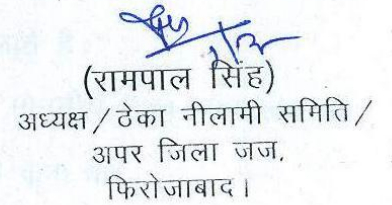 (रामपाल सिंह)
अध्यक्ष / ठेका नीलामी समिति /
अपर जिला जज,
फिरोजाबाद।